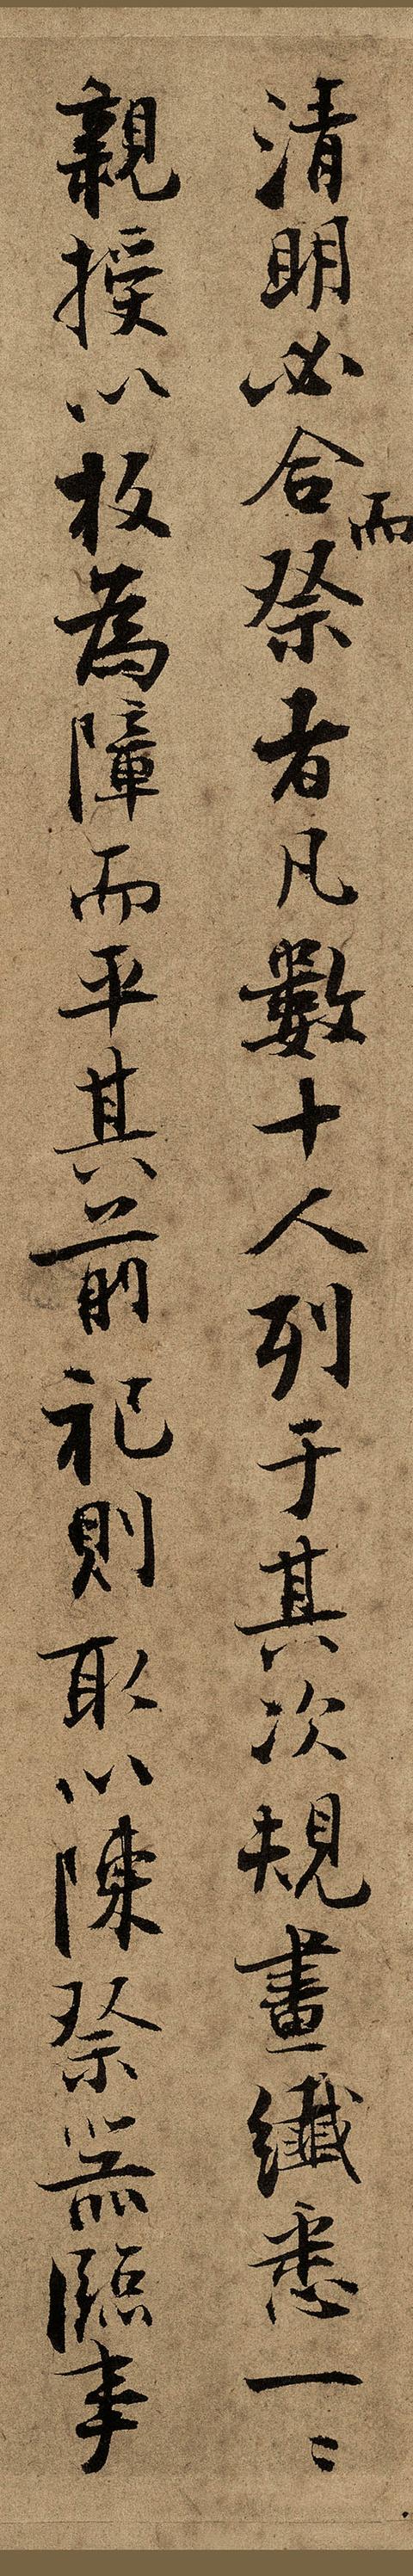 清明必合而祭者凡數十人列于其次規畫纖悉一〻
親授以板為障而平其前祀則取以陳祭器臨事